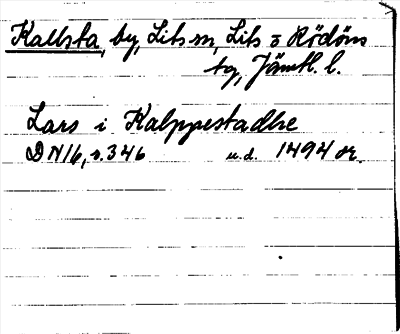 Kallsta, by, Lits sn, Lits o Rödöns
tg, Jämtl. l.
Lars i Kalppestadhe
DN16, s. 346 u.d. 1494 or.